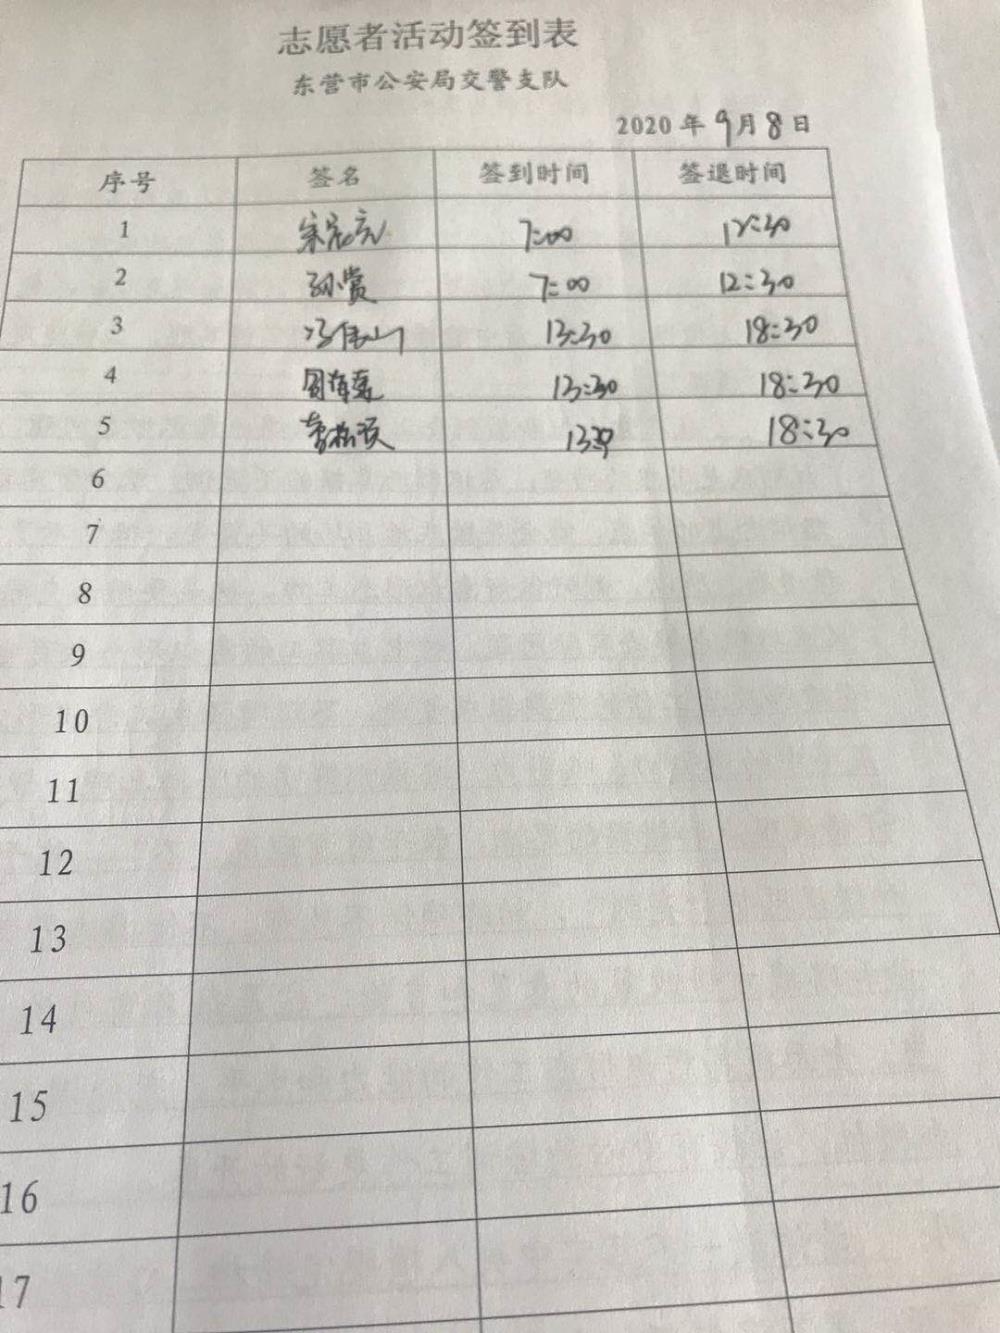 志愿者活动签到表
东营市公安局交警支队
2020 年 9月 8 日
序号 签名 签到时间 签退时间
1 7:00 12:30
2 孙赏 7:00 12:30
3 冯伟山 13:30 18:30
4 13:30 18:30
5 13:30 18:30
6
7
8
9
10
11
12
13
14
15
16
17